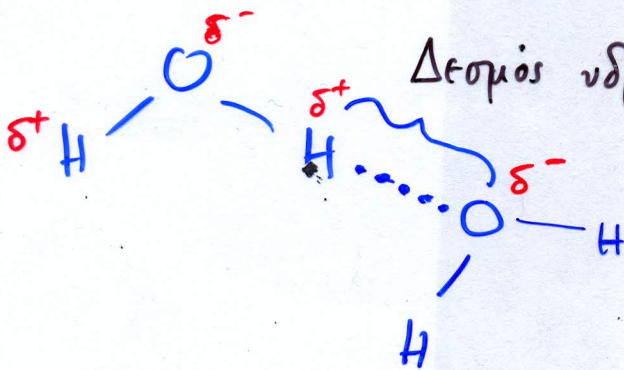 δ⁻
O
Δεσμός υδ
δ⁺
H
δ⁺
H
δ⁻
O
H
H